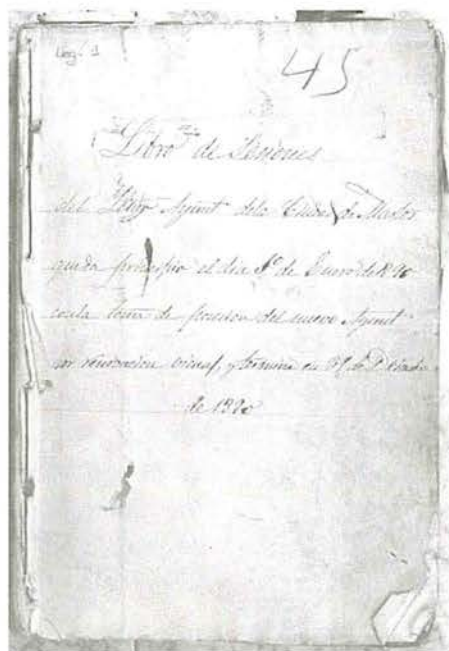 Leg. 1
45
Libro de Sesiones
del Ayunt de la Ciudad de
que da principio el dia 1º de Enero de 1890
con la toma de posesion del nuevo Ayunt
por renovacion y termina en 31 de
de 1890